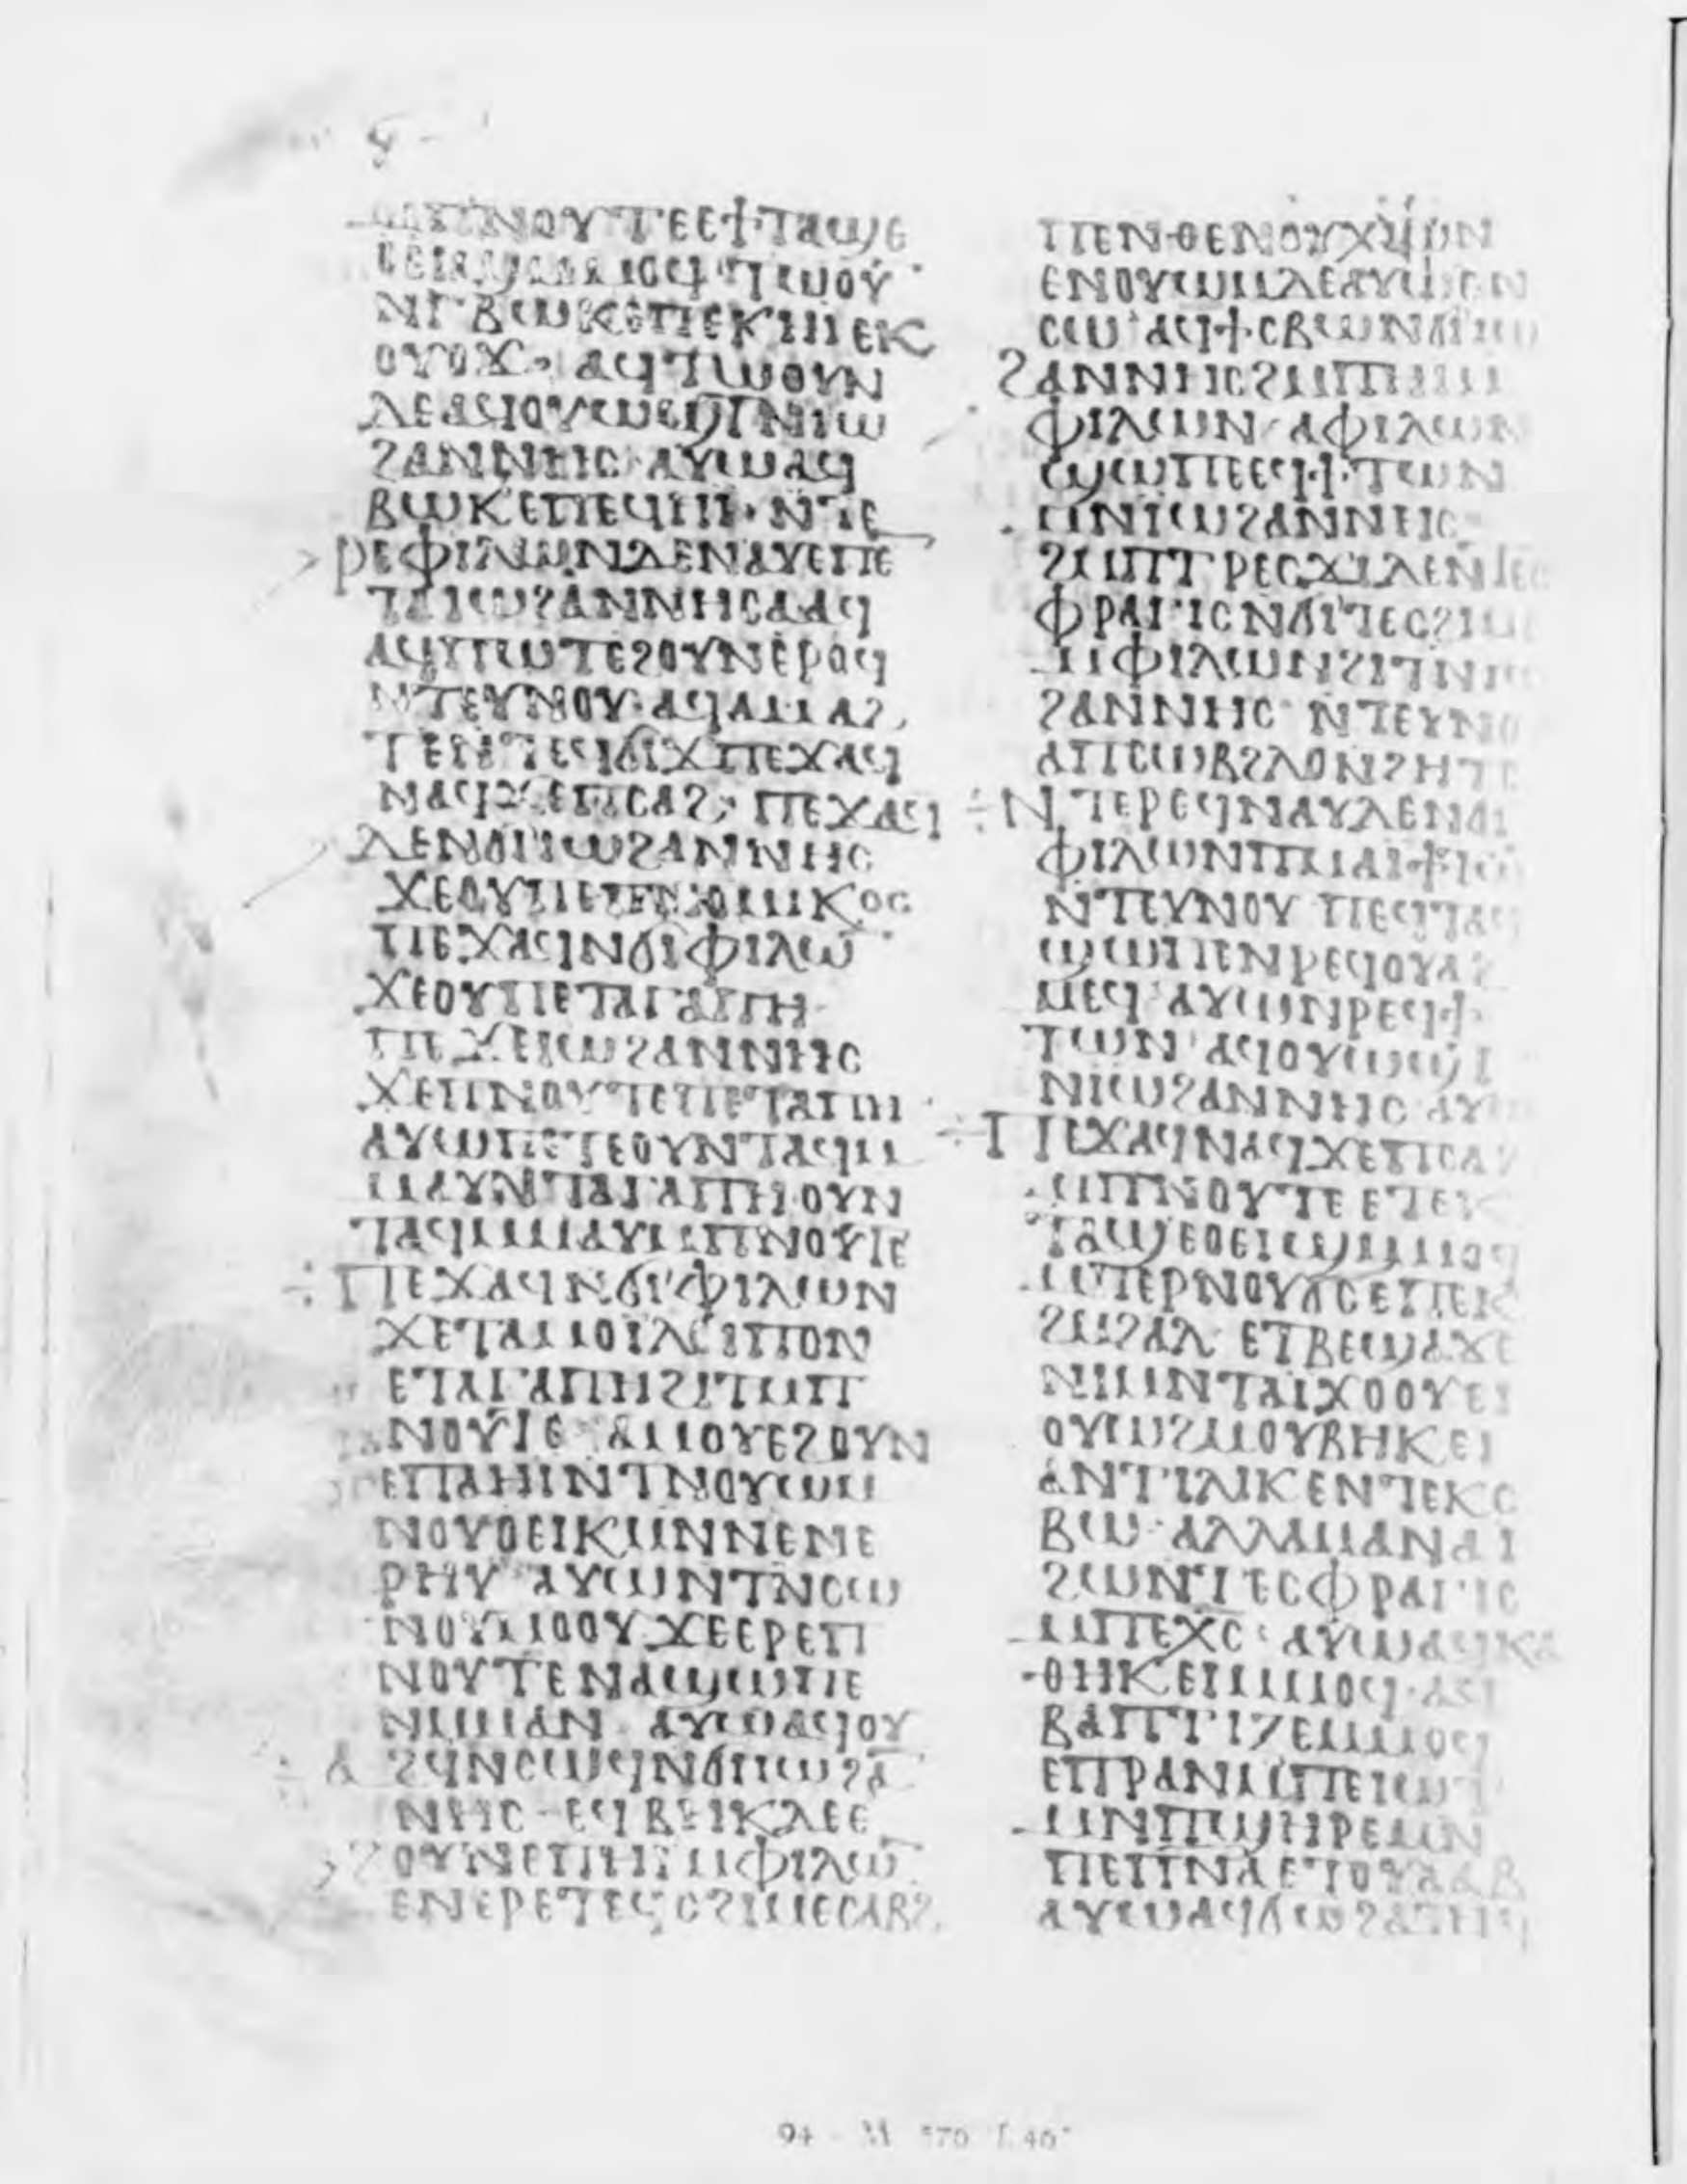 ⲛⲟⲩⲧⲉⲉϯⲧⲁϣⲉ
ⲡⲱⲟⲩ
ⲛⲅⲃⲱⲕⲉⲡⲉⲕⲏⲓ ⲉⲕ
ⲟⲩⲟϫ· ⲁϥⲧⲱⲟⲩⲛ
ⲇⲉⲁϥⲟⲩⲱϣⲧⲛⲓⲱ
ϩⲁⲛⲛⲏⲥ ⲁⲩⲱⲁϥ
ⲃⲱⲕⲉⲡⲉϥⲏⲓ· ⲛⲧⲉ
ⲣⲉⲫⲓⲗⲱⲛⲇⲉⲛⲁⲩⲉⲡⲉ
ⲧⲁⲓⲱϩⲁⲛⲛⲏⲥⲁⲁϥ
ⲁϥⲡⲱⲧⲉϩⲟⲩⲛⲉⲣⲟϥ
ⲛⲧⲉⲩⲛⲟⲩ· ⲁϥⲁⲙⲁϩ
ⲧⲉⲛⲧⲉϥϭⲓϫ ⲡⲉϫⲁϥ
ⲛⲁϥϫⲉⲡⲥⲁϩ· ⲡⲉϫⲁϥ
ⲇⲉⲛϭⲓⲓⲱϩⲁⲛⲛⲏⲥ
ϫⲉⲟⲩⲡⲉⲧⲉⲛϯⲙⲙⲕⲟⲥ
ⲡⲉϫⲁϥⲛϭⲓⲫⲓⲗⲱ̅
ϫⲉⲟⲩⲡⲉⲧⲁⲅⲁⲡⲏ
ⲡⲉϫⲉⲓⲱϩⲁⲛⲛⲏⲥ
ϫⲉⲡⲛⲟⲩⲧⲉⲡⲉⲧⲁⲅⲡⲏ
ⲁⲩⲱⲡⲉⲧⲉⲟⲩⲛⲧⲁϥⲙ
ⲙⲁⲩⲛⲧⲁⲅⲁⲡⲏ ⲟⲩⲛ
ⲧⲁϥⲙⲙⲁⲩⲙⲡⲛⲟⲩⲧⲉ
ⲡⲉϫⲁϥⲛϭⲓⲫⲓⲗⲱⲛ
ϫⲉⲧⲁⲙⲟⲓ
ⲉⲧⲁⲅⲁⲡⲏϩⲓⲧⲙⲡ
ⲛⲟⲩⲧⲉ ⲁⲙⲟⲩⲉϩⲟⲩⲛ
ⲉⲡⲁⲏⲓⲛⲧⲛⲟⲩⲱⲙ
ⲛⲟⲩⲟⲉⲓⲕⲙⲛⲛⲉⲛⲉ
ⲣⲏⲩ ⲁⲩⲱⲛⲧⲛⲥⲱ
ⲛⲟⲩⲙⲟⲟⲩ ϫⲉⲉⲣⲉⲡ
ⲛⲟⲩⲧⲉⲛⲁϣⲱⲡⲉ
ⲛⲙⲙⲁⲛ ⲁⲩⲱⲁϥⲟⲩ
ⲁϩϥⲛⲥⲱϥⲛϭⲓⲓⲱϩⲁ̅
ⲛⲏⲥ ⲉϥⲃⲏⲕⲇⲉⲉ
ϩⲟⲩⲛⲉⲡⲏⲓⲙⲫⲓⲗⲱ̅
ⲉⲛⲉⲣⲉⲧⲉϥⲥϩⲓⲙⲉⲥⲁⲃϩ
ⲡⲉⲛϩⲉⲛⲟⲩⲭⲓⲱⲛ
ⲉⲛⲟⲩⲱⲙⲇⲉⲁⲩⲱⲉⲛ
ⲥⲱ ⲁϥϯⲥⲃⲱⲛϭⲓⲓⲱ
ϩⲁⲛⲛⲏⲥϩⲙⲡⲏⲓⲙ
ⲫⲓⲗⲱⲛ ⲁⲫⲓⲗⲱⲛ
ϣⲱⲡⲉⲉϥϯⲧⲱⲛ
ⲙⲛⲓⲱϩⲁⲛⲛⲏⲥ
ϩⲙⲡⲧⲣⲉⲥϫⲓⲇⲉⲛⲧⲉⲥ
ⲫⲣⲁⲅⲓⲥⲛϭⲓⲧⲉⲥϩⲓⲙⲉ
ⲙⲫⲓⲗⲱⲛϩⲓⲧⲛⲓⲱ
ϩⲁⲛⲛⲏⲥ ⲛⲧⲉⲩⲛⲟ
ⲁⲡⲥⲱⲃϩⲗⲟⲛϩⲏⲧⲥ
ⲛⲧⲉⲣⲉϥⲛⲁⲩⲇⲉⲛϭⲓ
ⲫⲓⲗⲱⲛⲡⲙⲁⲓϯⲧⲱ
ⲛⲧⲉⲩⲛⲟⲩ ⲡⲉϥⲧⲁϥ
ϣⲱⲡⲉⲛⲣⲉϥⲟⲩⲁϩ
ⲙⲉϥ ⲁⲩⲱⲛⲣⲉϥϯ
ⲧⲱⲛ ⲁϥⲟⲩⲱϣⲧ
ⲛⲓⲱϩⲁⲛⲛⲏⲥ ⲁⲩⲱ
ⲡⲉϫⲁϥⲛⲁϥϫⲉⲡⲥⲁϩ
ⲙⲡⲛⲟⲩⲧⲉ ⲉⲧⲉⲕ
ⲧⲁϣⲉⲟⲉⲓϣⲙⲙⲟϥ
ⲙⲡⲉⲣⲛⲟⲩϭⲥⲉⲡⲉⲕ
ϩⲙϩⲁⲗ ⲉⲧⲃⲉϣⲁϫⲉ
ⲛⲓⲙⲛⲧⲁⲓϫⲟⲟⲩⲉⲓ
ⲟⲩⲱϩⲙⲟⲩⲃⲏⲕⲉⲓ
ⲁⲛⲧⲓⲗⲓⲕⲉⲛⲧⲉⲕⲥ
ⲃⲱ ⲁⲗⲗⲁⲙⲁⲛⲁⲓ
ϩⲱⲛⲧⲉⲥⲫⲣⲁⲅⲓⲥ
ⲙⲡⲉⲭ̅ⲥ̅ ⲁⲩⲱⲁϥⲕⲁ
ⲑⲏⲕⲉⲓⲙⲙⲟϥ ⲁϥ
ⲃⲁⲡⲧⲓⲍⲉⲙⲙⲟϥ
ⲉⲡⲣⲁⲛⲙⲡⲉⲓⲱⲧ
ⲙⲛⲡϣⲏⲣⲉⲙⲛ
ⲡⲉⲡⲛⲁⲉⲧⲟⲩⲁⲁⲃ
ⲁⲩⲱⲁϥϭⲱϩⲁϩⲧⲏϥ
94 M 570 f. 40